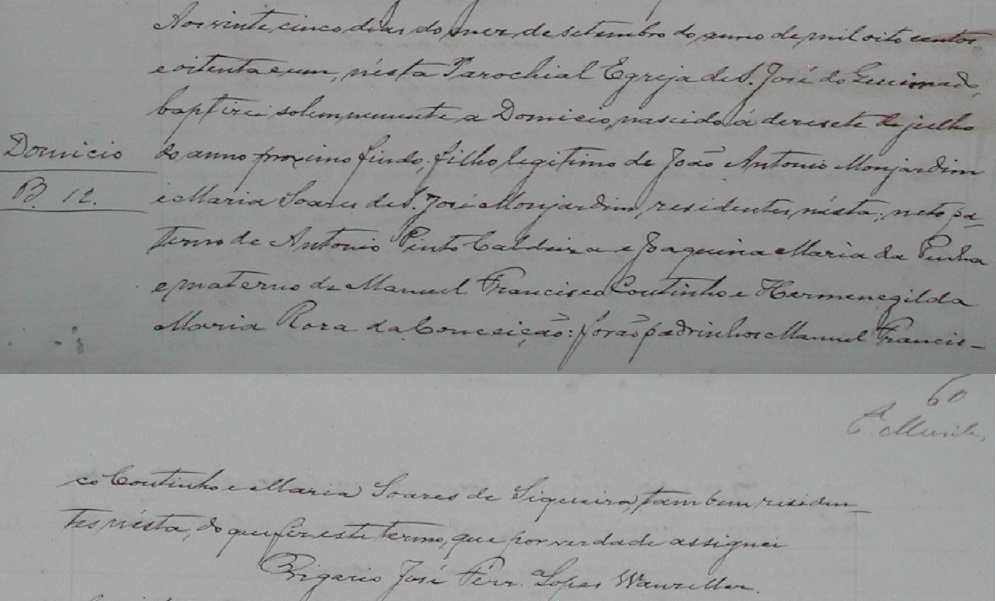 Aos vinte cinco dias do mez de setembro do anno de mil oito centos
e oitenta e um, nésta Parochial Egreja de S. José do Queimado,
baptizei solemnemente a Domicio, nascido á dezesete de julho
Domicio
do anno proximo findo, filho legitimo de João Antonio Monjardim
B. 12.
e Maria Soares de S. José Monjardim, residentes nésta; neto pa-
terno de Antonio Pinto Caldeira e Joaquina Maria da Penha
e materno de Manuel Francisco Coutinho e Hermenegilda
Maria Roza da Conceição: forão padrinhos Manuel Francis-
60
co Coutinho e Maria Soares de Siqueira, tambem residen-
tes nésta, do que fiz este termo, que por verdade assignei
Vigario José Ferr.ª Lopes Wanzeller.